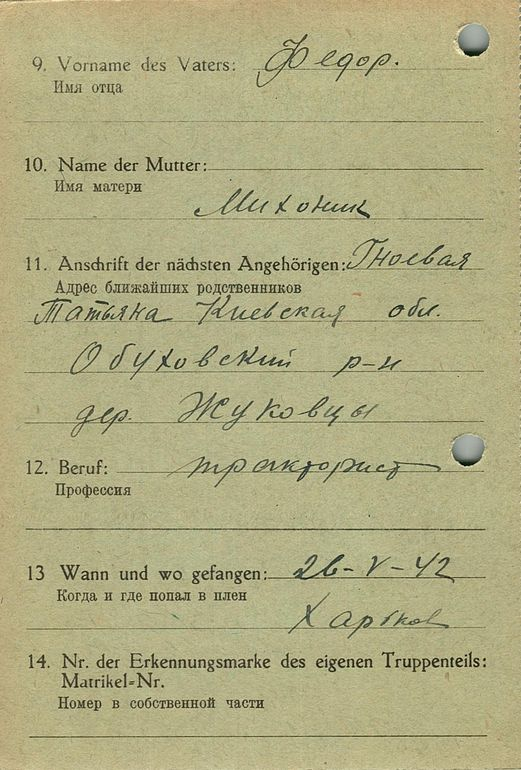 9. Vorname des Vaters: Федор.
Имя отца
10. Name der Mutter:
Имя матери
Михоник
11. Anschrift der nächsten Angehörigen: Гноевая
Адрес ближайших родственников
Татьяна Киевская обл.
Обуховский р-н
дер. Жуковцы
12. Beruf: тракторист
Профессия
13 Wann und wo gefangen: 26-V-42
Когда и где попал в плен
Харьков
14. Nr. der Erkennungsmarke des eigenen Truppenteils:
Matrikel-Nr.
Номер в собственной части